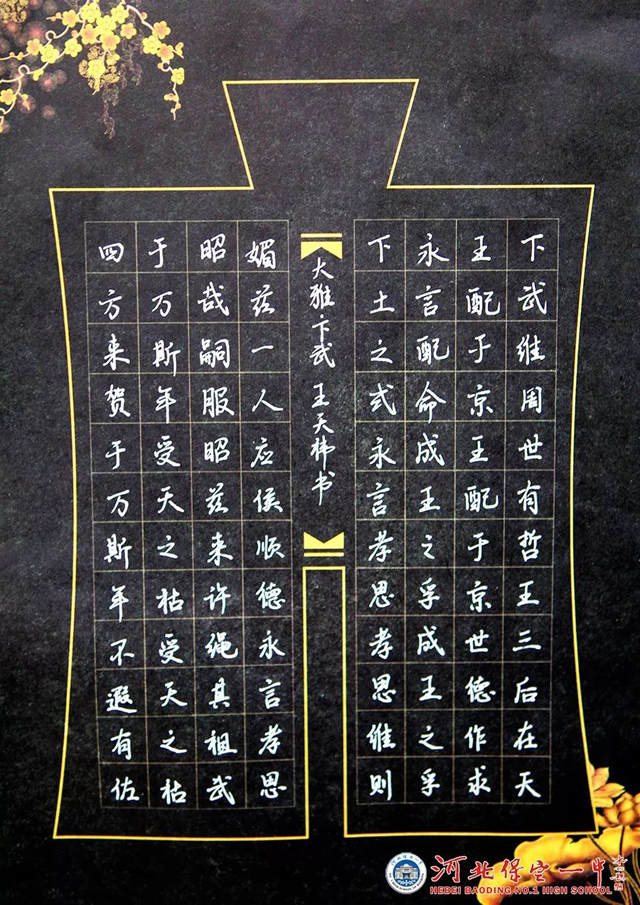 下武维周世有哲王三后在天
王配于京王配于京世德作求
永言配命成王之孚成王之孚
下土之式永言孝思孝思维则
大雅·下武 王天梻书
媚兹一人应侯顺德永言孝思
昭哉嗣服昭兹来许绳其祖武
于万斯年受天之枯受天之枯
四方来贺于万斯年不遐有佐
河北保定一中
HEBEI BAODING NO.1 HIGH SCHOOL